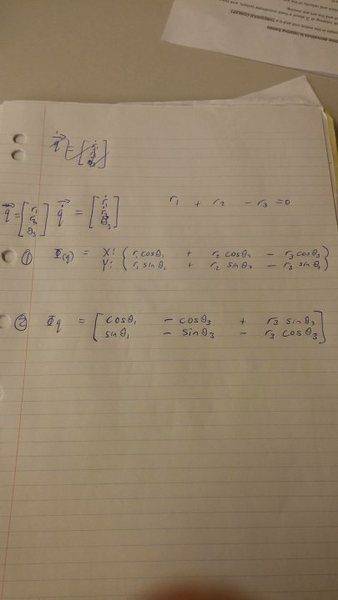 q̇ = [ ]
q = [r₁ r₂ θ₃] q̇ = [ṙ₁ ṙ₂ θ̇₃] r₁ + r₂ - r₃ = 0
① Φ(q) = X: { r₁cosθ₁ + r₂ cosθ₂ - r₃cosθ₃ }
Y: { r₁ sinθ₁ + r₂ sinθ₂ - r₃ sinθ₃ }
② Φq = [ cosθ₁ - cosθ₃ + r₃ sinθ₃
sinθ₁ - sinθ₃ - r₃ cosθ₃ ]